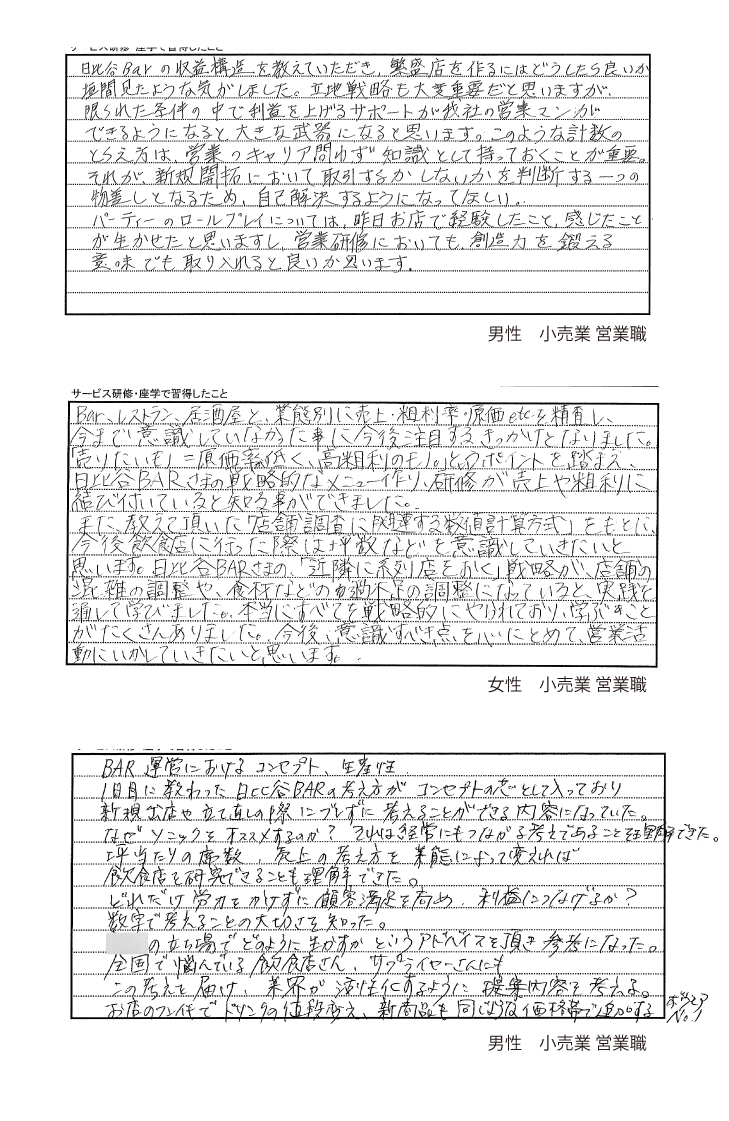 サービス研修・座学で習得したこと
日比谷Barの収益構造を教えていただき、繁盛店を作るにはどうしたら良いか
垣間見たような気がしました。立地戦略も大変重要だと思いますが、
限られた条件の中で利益を上げるサポートが我社の営業マンが
できるようになると大きな武器になると思います。このような計数の
とらえ方は、営業のキャリア問わず知識として持っておくことが重要。
それが、新規開拓において取引するかしないかを判断する一つの
物差しとなるため、自己解決するようになってほしい。
パーティーのロールプレイについては、昨日お店で経験したこと、感じたこと
が生かせたと思いますし、営業研修においても、創造力を鍛える
意味でも取り入れると良いか思います。
男性 小売業 営業職
サービス研修・座学で習得したこと
Bar、レストラン、居酒屋と、業態別に売上・粗利率・原価etcを精査し、
今まで意識していなかった事に今後注目するきっかけとなりました。
「売りたいもの=原価率低く、高粗利のモノ。」というポイントを踏まえ、
日比谷BARさまの戦略的なメニュー作り、研修が売上や粗利に
結び付いていると知る事ができました。
また、教えて頂いた「店舗調査に関連する数値計算方式」をもとに、
今後飲食店に行った際は坪数などを意識していきたいと
思います。日比谷BARさまの、「近隣に系列店をおく」戦略が、店舗の
混雑の調整や、食材などの過不足の調整になっていると、実践を
通して学びました。本当にすべてを戦略的にやられており、学ぶべきこと
がたくさんありました。今後、意識すべき点を心にとめて、営業活
動にいかしていきたいと思います。
女性 小売業 営業職
サービス研修・座学で習得したこと
BAR 運営におけるコンセプト、生産性
1日目に教わった日比谷BARの考え方がコンセプトの芯として入っており
新規出店や立て直しの際にブレずに考えることができる内容になっていた。
なぜソニックをオススメするのか? それは経営にもつながる考えであることを理解できた。
坪当たりの席数、売上の考え方を業態によって変えれば
飲食店を研究できることも理解できた。
どれだけ労力をかけずに顧客満足を高め、利益につなげるか?
数字で考えることの大切さを知った。
の立ち場でどのように生かすかというアドバイスを頂き参考になった。
全国で悩んでいる飲食店さん、サプライヤーさんにも
この考えを届け、業界が活性化するように提案内容を考える。
お店のフンイキでドリンクの値段変え、新商品も同じような価格帯で追加する
No.1
男性 小売業 営業職